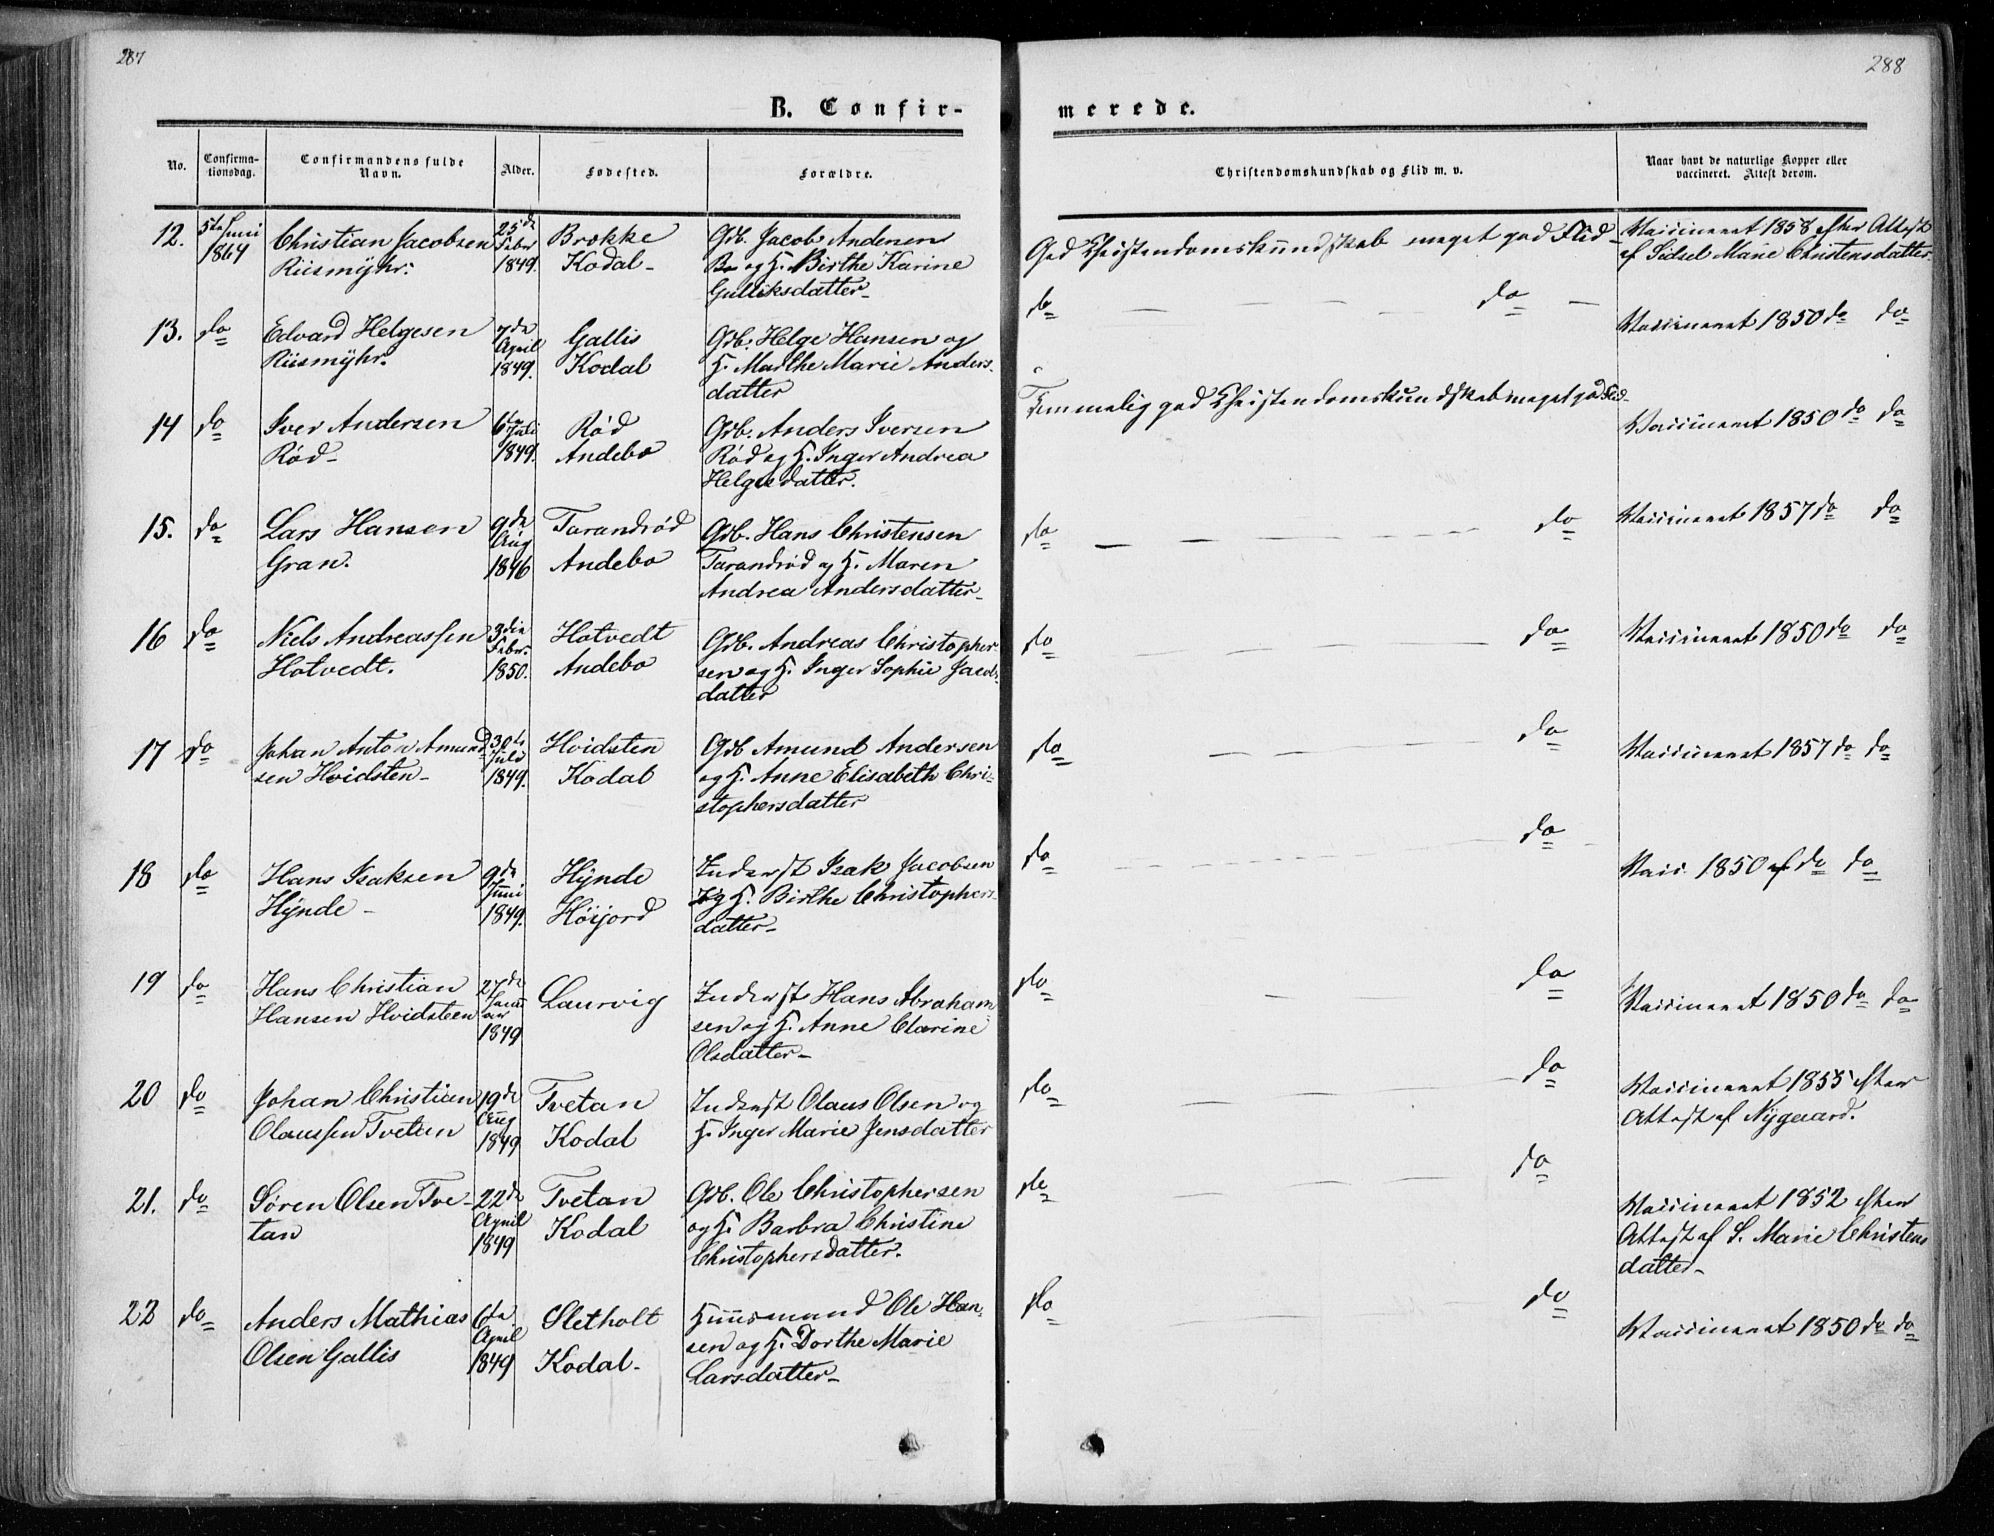 287
288
B. Confir-
merede.
No.
Confirma-
tionsdag.
Confirmandens fulde
Navn.
Alder.
Fødested.
Forældre.
Christendomskundskab og Flid m. v.
Naar havt de naturlige Kopper eller
vaccineret. Attest derom.
12.
5te Juni
1864
Christian Jacobsen
Riismÿhr.
25de
Febr
1849.
Brekke
Kodal-
Gdb. Jacob Andersen
Br og H. Birthe Karine
Gulliksdatter-
God Christendomskundskab meget god Flid-
Vaccineret 1858 efter Attest
af Sidsel Marie Christensdatter.
13.
do
Edvard Helgesen
Riismÿhr.
7de
April
1849.
Gallis
Kodal
Gdb. Helge Hansen og
H. Marthe Marie Anders-
datter
do
do
Vaccineret 1850 do do
14
do
Iver Andersen
Rød-
6te
Juli
1849.
Rød
Andebo
Gdb. Anders Iversen
Rød og H. Inger Andrea
Helgesdatter.
Temmelig god Christendomskundskab meget god Flid-
Vaccineret 1850 do do
15.
do
Lars Hansen
Gran.
9de
Aug
1846
Tarandrød
Andebo
Gdb. Hans Christensen
Tarandrød og H. Maren
Andrea Andersdatter-
do
do
Vaccineret 1857 do do
16
do
Niels Andreassen
Hotvedt.
3die
Febr.
1850.
Hotvedt
Andebo
Gdb. Andreas Christopher-
sen og H. Inger Sophie Jacobs-
datter
do
do
Vaccineret 1850 do do
17
do
Johan Anton Amund-
sen Hvidsten-
30te
Juli
1849.
Hvidsten
Kodal
Gdb Amund Andersen
og H. Anne Elisabeth Chri-
stophersdatter
do
do
Vaccineret 1857 do do
18
do
Hans Isaksen
Hÿnde-
9de
Juni
1849.
Hÿnde
Høijord
Inderst Isak Jacobsen
og H. Birthe Christophers-
datter-
do
do
Vacc. 1850 af do do
19
do
Hans Christian
Hansen Hvidsteen
27de
Janu
ar
1849
Laurvig
Inderst Hans Abraham-
sen og H. Anne Clarine
Olsdatter-
do
do
Vaccineret 1850 do do
20
do
Johan Christian
Olaussen Tvetan
19de
Aug
1849
Tvetan
Kodal
Inderst Olaus Olsen og
H. Inger Marie Jensdatter
do
do
Vaccineret 1855 efter
Attest af Nÿgaard.
21.
do
Søren Olsen Tve-
tan
22de
April
1849
Tvetan
Kodal
Gdb. Ole Christophersen
og H. Barbra Christine
Christophersdatter.
do
do
Vaccineret 1852 efter
Attest af S. Marie Christens
datter-
22
do
Anders Mathias
Olsen Gallis
6te
April
1849
Sletholt
Kodal-
Huusmand Ole Han-
sen og H. Dorthe Marie
Larsdatter-
do
do
Vaccineret 1850 do do